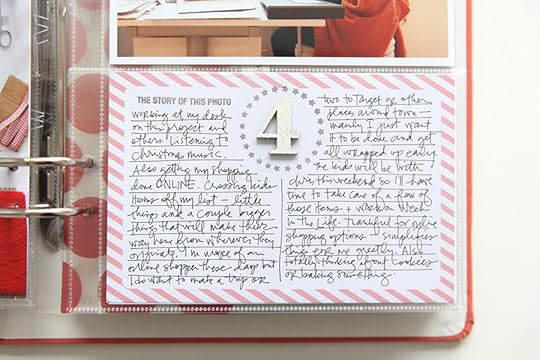 THE STORY OF THIS PHOTO
working at my desk
on this project and
others. Listening to
Christmas music.
Also getting my shopping
done ONLINE. Crossing kids
items off my list - little
things and a couple bigger
things that will make their
way here from wherever they
originate. I'm more of an
online shopper these days but
I do want to make a trip or
4
two to Target or other
places around town -
mainly I just want
it to be done and get
all wrapped up early.
The kids will be with
Chris this weekend so I'll have
time to take care of a few of
these items + work on Week
in the Life. Thankful for online
shopping options - simplifies
this for me greatly. Also
totally thinking about cookies
or baking something.